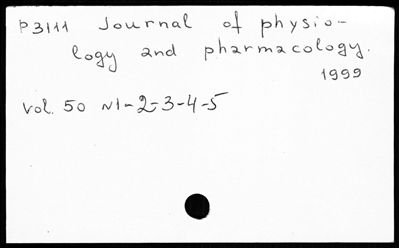 P3111 Journal of physio-
logy and pharmacology.
1999
vol. 50 N1-2-3-4-5